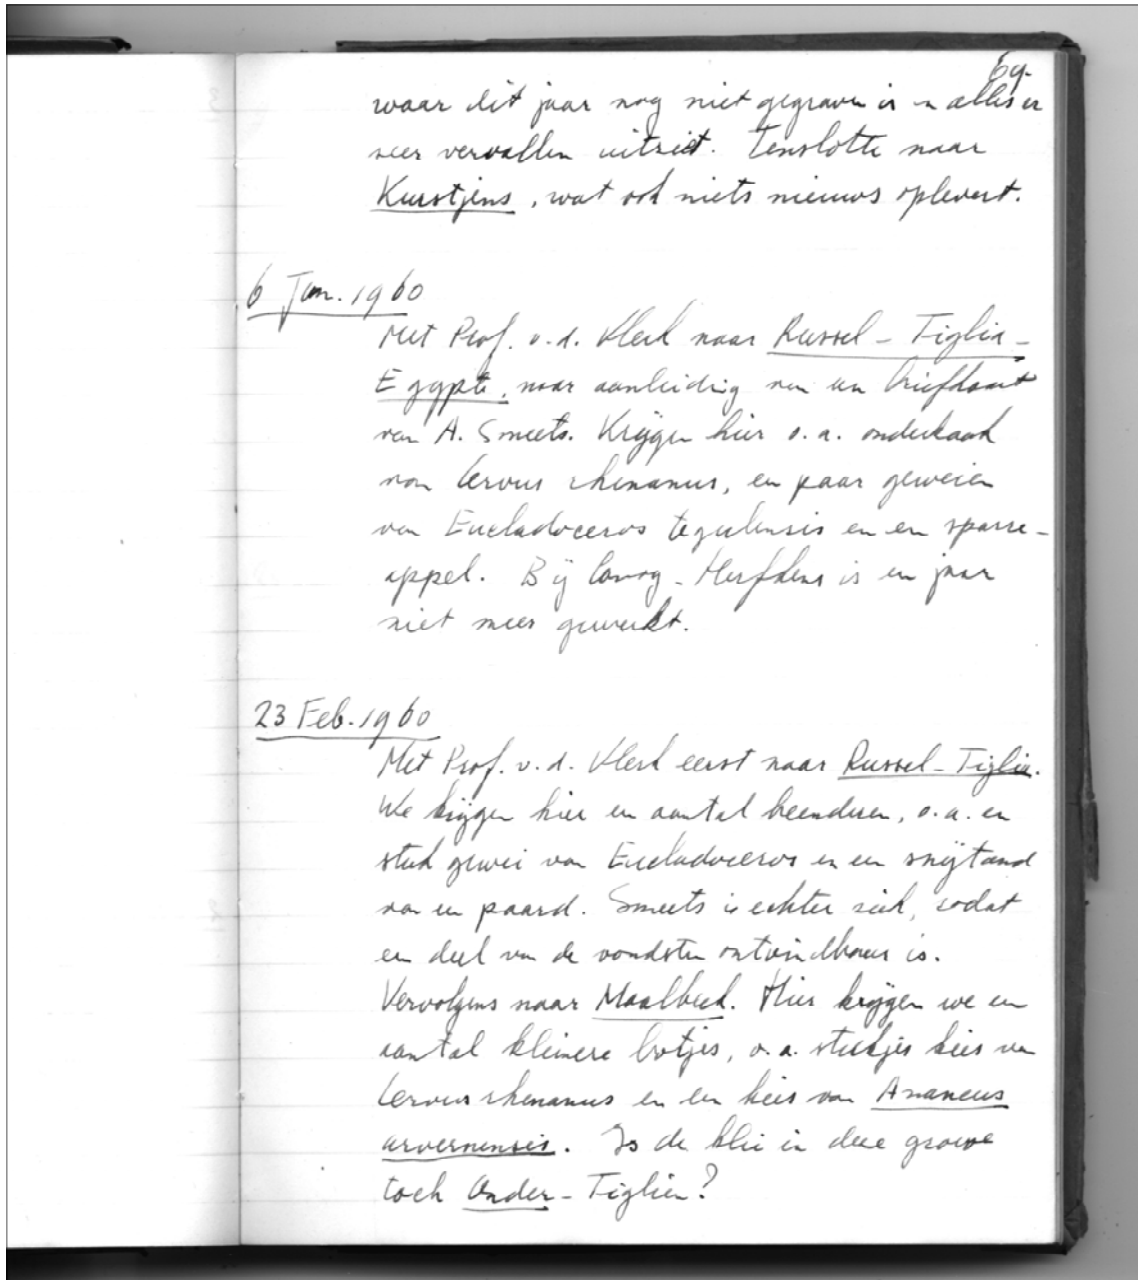 69.
waar dit jaar nog niet gegraven is en alles er
zeer vervallen uitziet. Tenslotte naar
Kurstjens, wat ook niets nieuws oplevert.
6 Jan. 1960
Met Prof. v.d. Vlerk naar Russel - Tiglia -
Egypte, naar aanleiding van een briefkaart
van A. Smeets. Krijgen hier o.a. onderkaak
van Cervus rhenanus, een paar geweien
van Eucladoceros tegulensis en een sparre-
appel. Bij Canoy-Herfkens is een jaar
niet meer gewerkt.
23 Feb. 1960
Met Prof. v.d. Vlerk eerst naar Russel-Tiglia.
We krijgen hier een aantal beenderen, o.a. een
stuk gewei van Eucladoceros en een snijtand
van een paard. Smeets is echter ziek, zodat
een deel van de vondsten onvindbaar is.
Vervolgens naar Maalbeek. Hier krijgen we een
aantal kleinere botjes, o.a. stukjes kies van
Cervus rhenanus en een kies van Anancus
arvernensis. Is de klei in deze groeve
toch Onder-Tiglien?